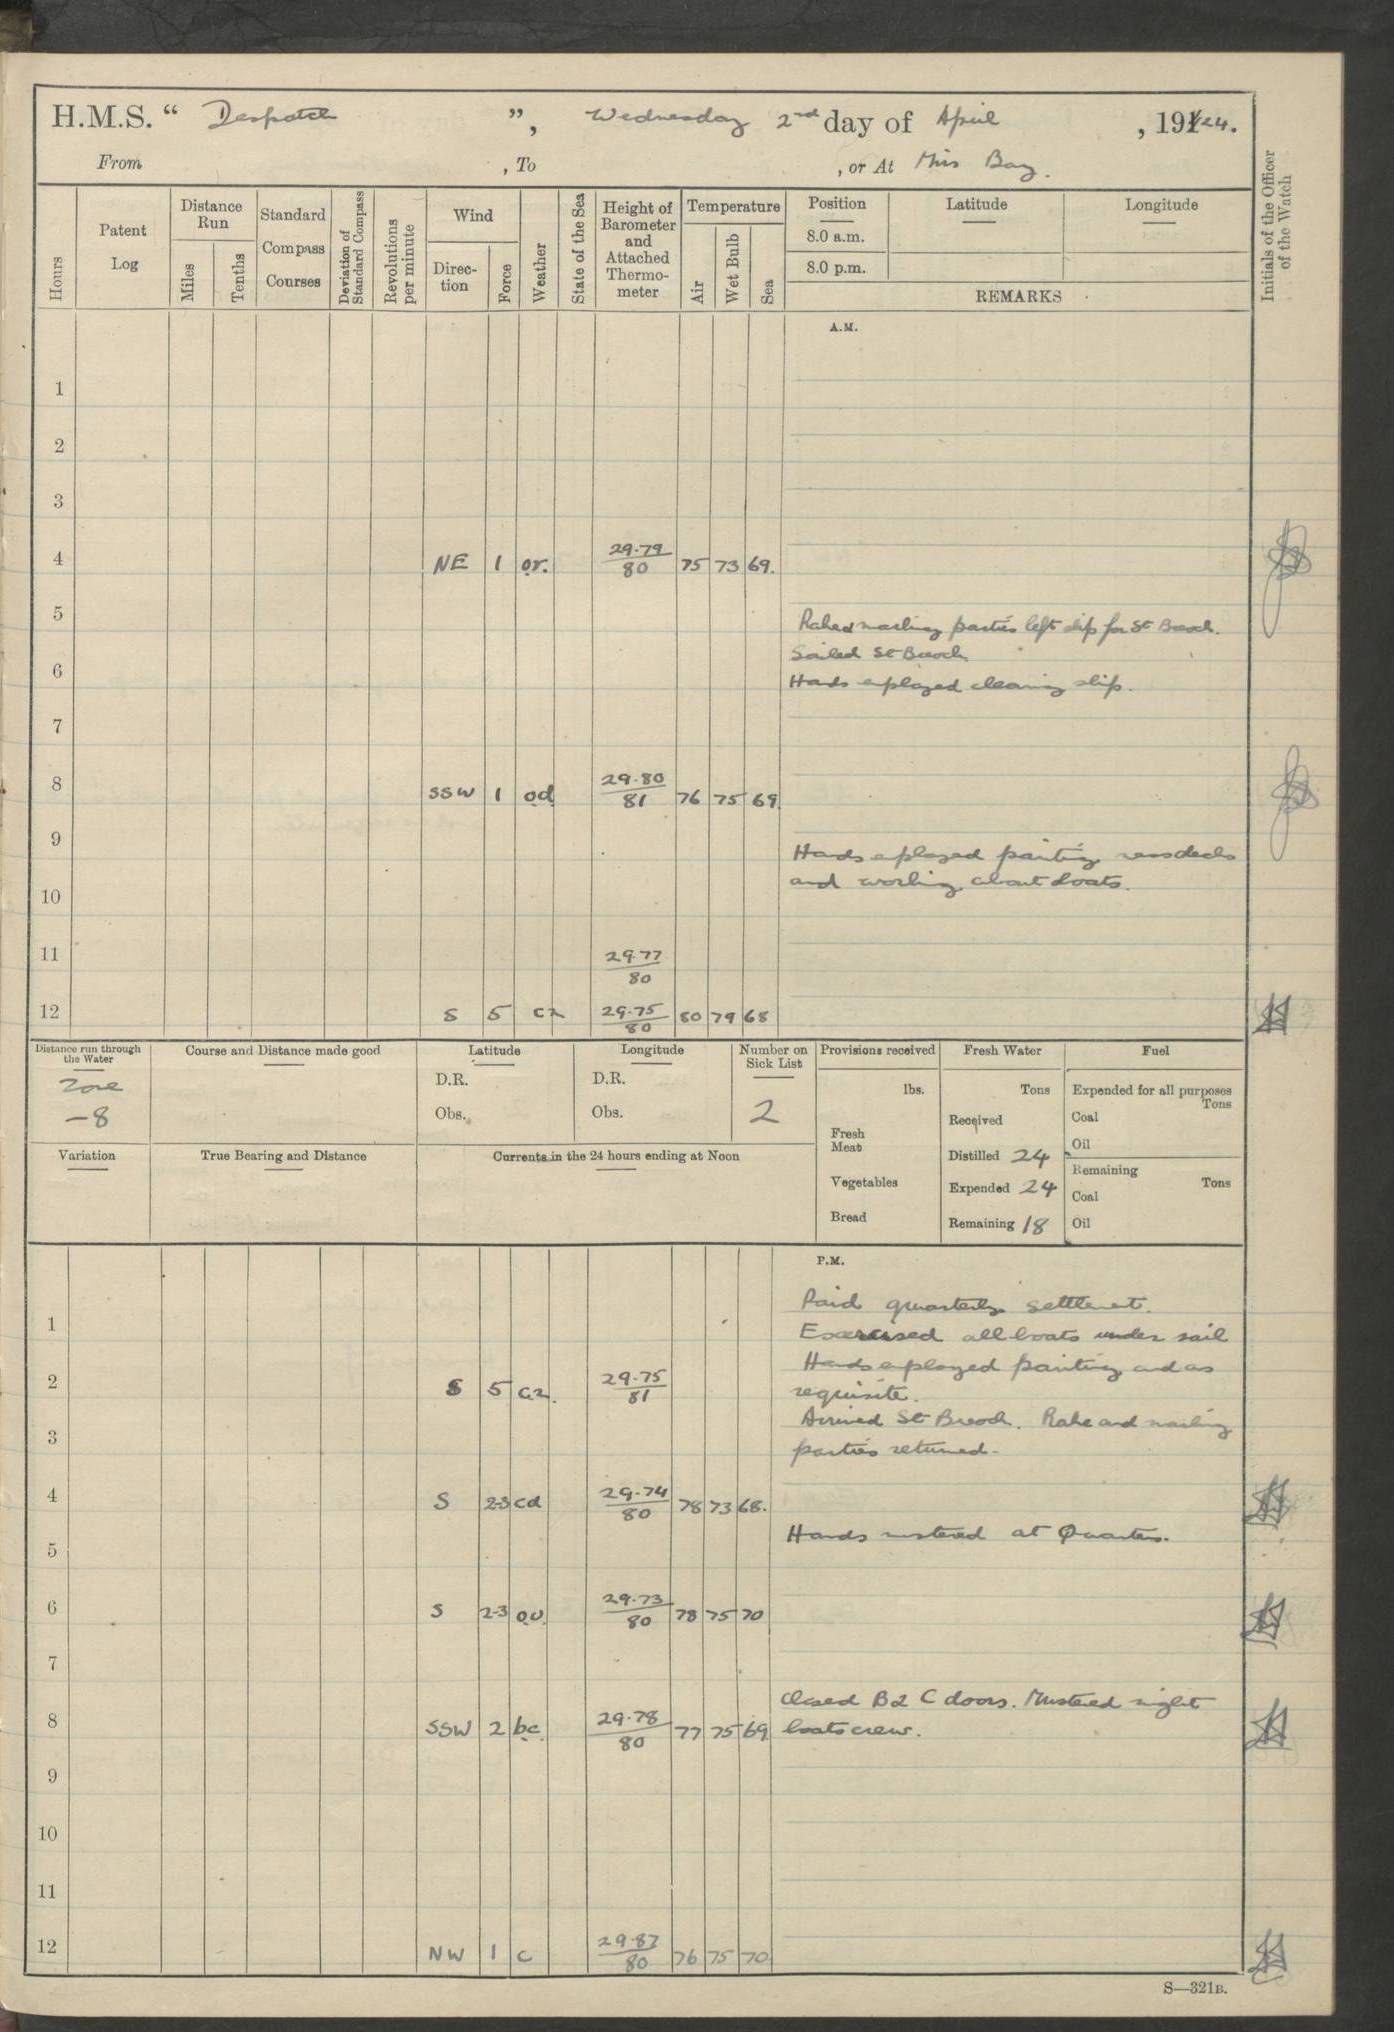 H.M.S. “ Despatch ”, Wednesday 2nd day of April , 1924.
From , To , or At Mirs Bay.
Hours
Patent Log
Distance Run
Miles
Tenths
Standard Compass Courses
Deviation of Standard Compass
Revolutions per minute
Wind
Direc-tion
Force
Weather
State of the Sea
Height of Barometer and Attached Thermo-meter
Temperature
Air
Wet Bulb
Sea
Position
8.0 a.m.
8.0 p.m.
Latitude
Longitude
REMARKS
Initials of the Officer of the Watch
A.M.
1
2
3
4 NE 1 or. 29.79/80 75 73 69.
5
parties left ship for St Breock.
Sailed St Breock
6
Hands employed cleaning ship.
7
8 SSW 1 od 29.80/81 76 75 69
9
Hands employed painting messdecks
and working about boats.
10
11 29.77/80
12 S 5 cz 29.75/80 80 79 68
Distance run through the Water
Zone
-8
Course and Distance made good
Latitude
D.R.
Obs.
Longitude
D.R.
Obs.
Number on Sick List
2
Provisions received
lbs.
Fresh Meat
Vegetables
Bread
Fresh Water
Tons
Received
Distilled 24
Expended 24
Remaining 18
Fuel
Expended for all purposes
Tons
Coal
Oil
Remaining
Tons
Coal
Oil
Variation
True Bearing and Distance
Currents in the 24 hours ending at Noon
P.M.
Paid quarterly settlement.
1
Exercised all boats under sail
Hands employed painting and as
2 S 5 cz. 29.75/81
requisite.
Arrived St Breock. Rake and marking
3
parties returned.
4 S 2-3 cd 29.74/80 78 73 68.
Hands mustered at Quarters.
5
6 S 2-3 ou 29.73/80 78 75 70
7
Closed B & C doors. Mustered night
8 SSW 2 bc. 29.78/80 77 75 69 boats crew.
9
10
11
12 NW 1 c 29.87/80 76 75 70
S—321B.